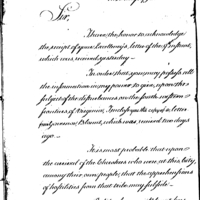 Sir,
I have the honor to acknowledge
the receipt of your Excellency's letter of the 5th instant,
which was received yesterday—
In order that you may possess all
the information in my power to give, upon the
subject of the disturbances on the south western
frontiers of Virginia, I enclose you the copy of a letter
from Governor Blount, which was received two days
ago.—
It is most probable that upon
the removal of the Cherokees who were, at this
among their own people, that the apprehensions
of hostilities from that tribe may subside—